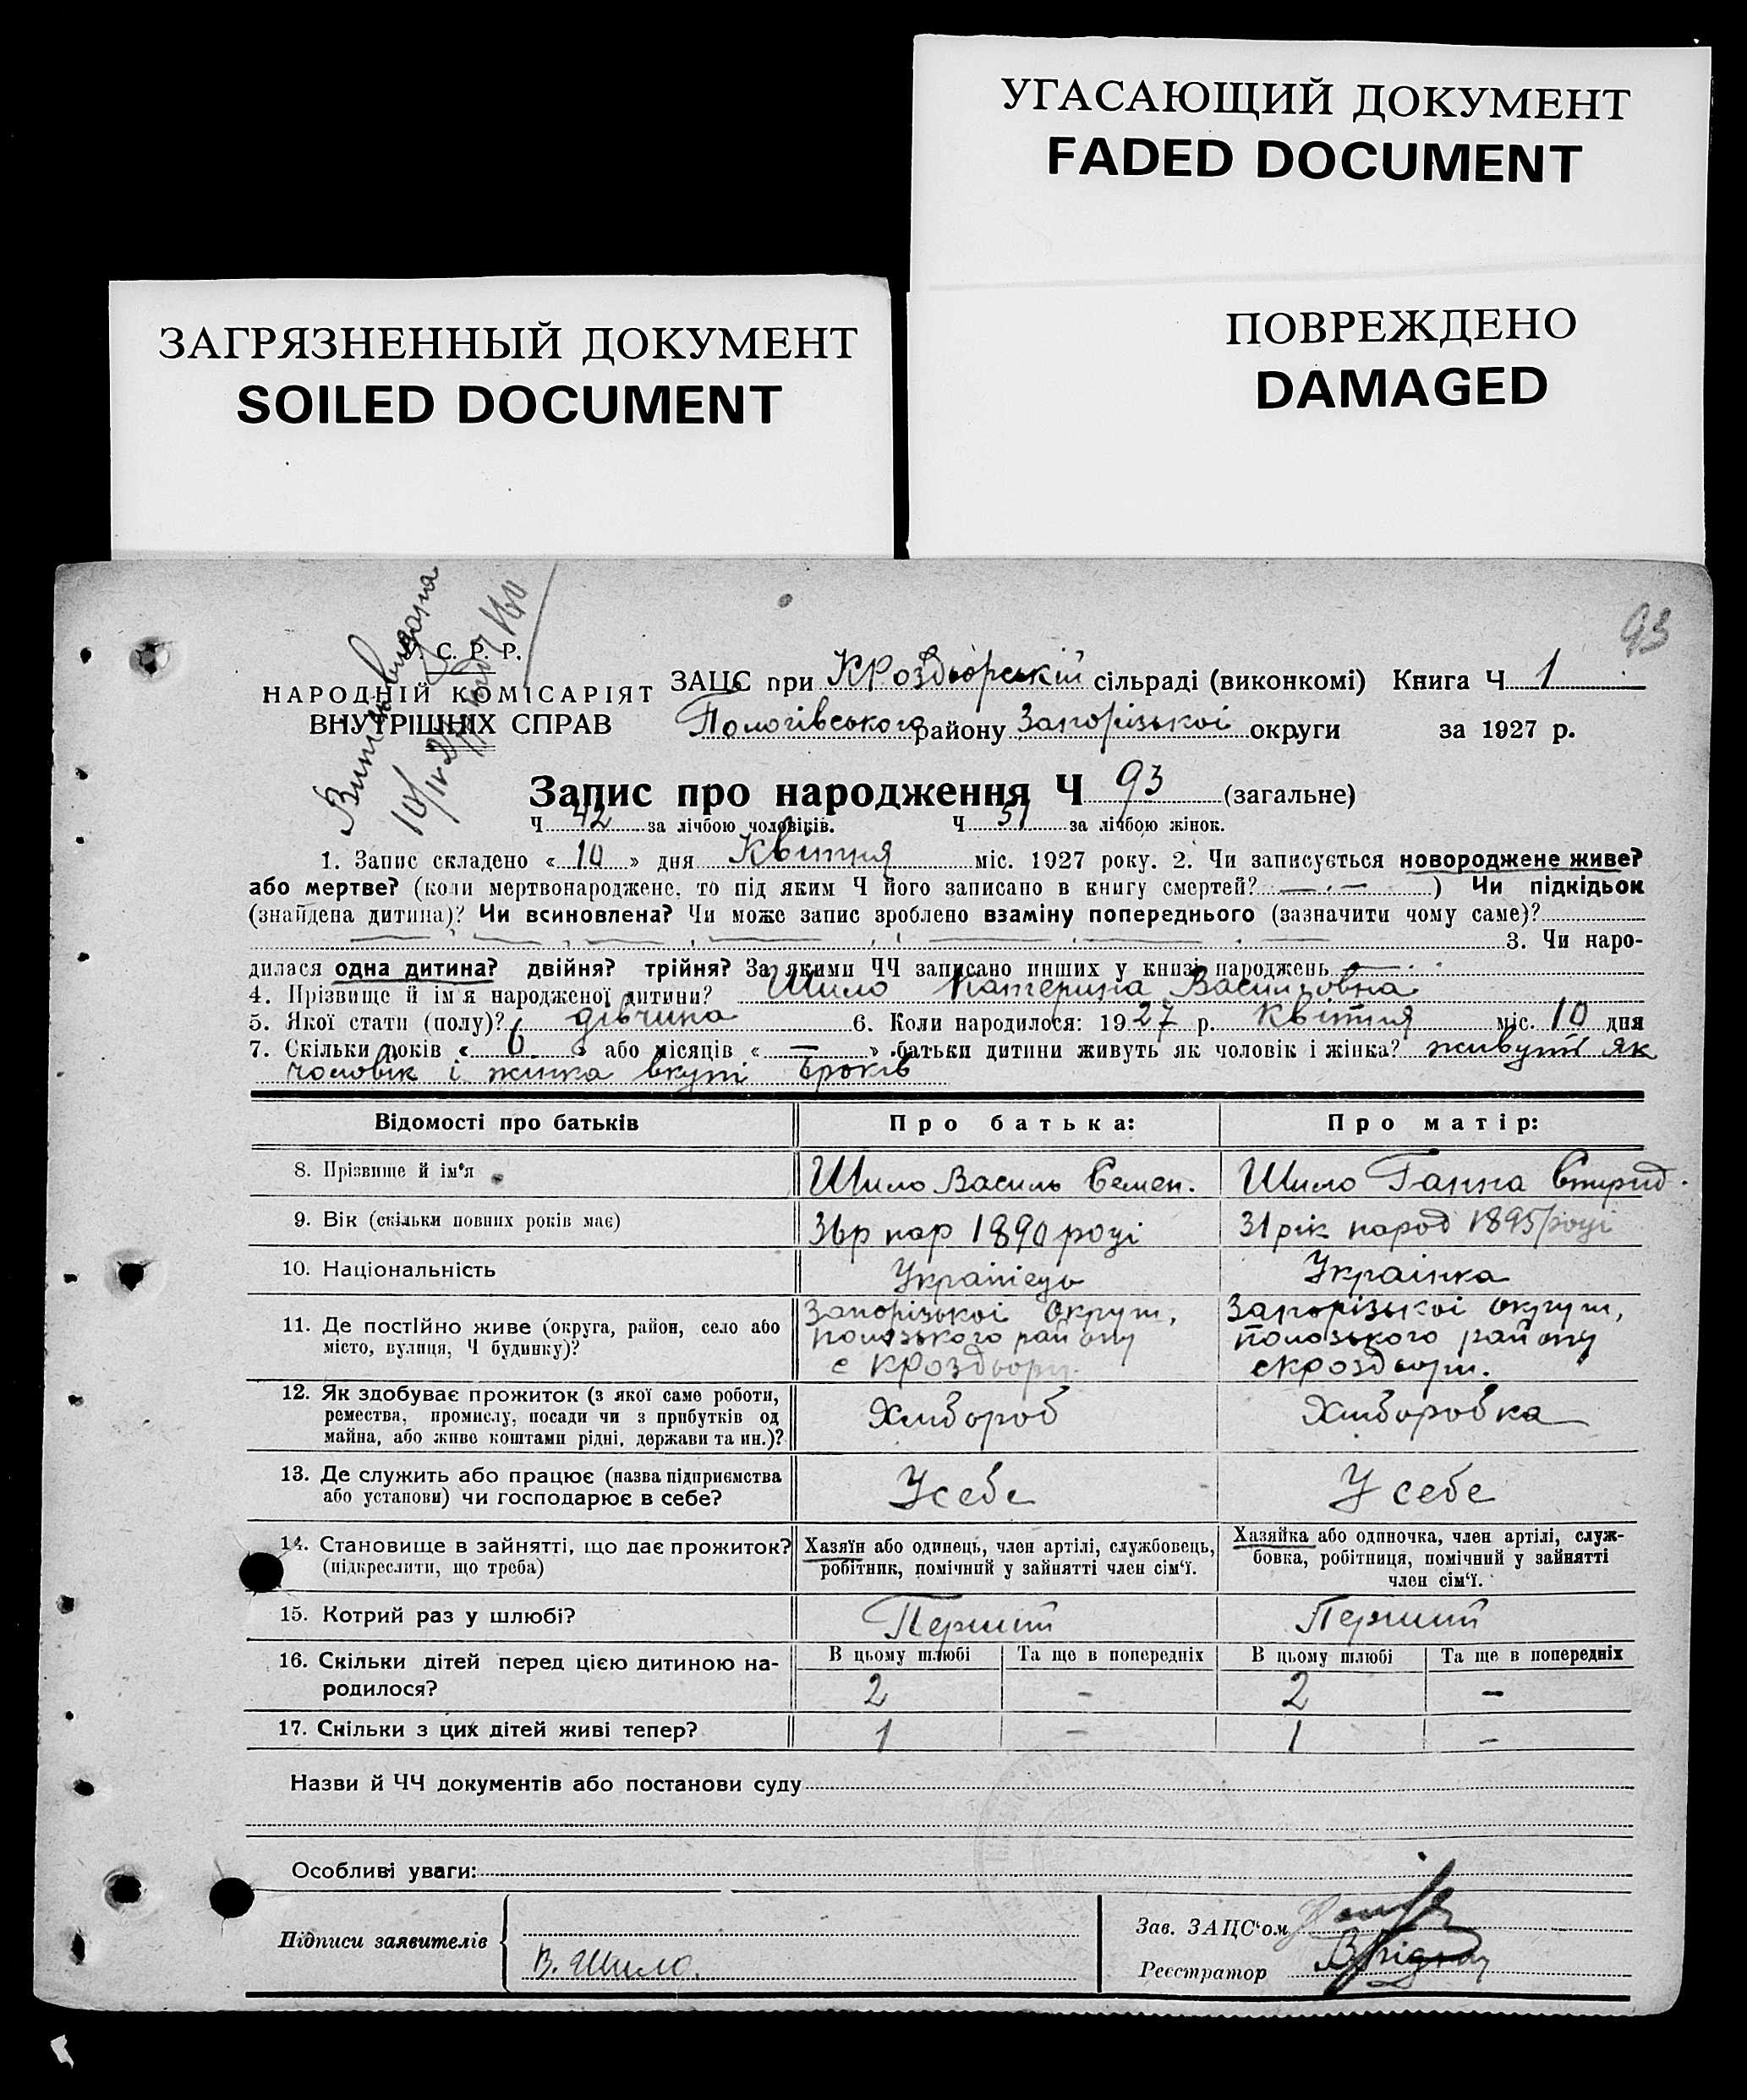 УГАСАЮЩИЙ ДОКУМЕНТ
FADED DOCUMENT
ПОВРЕЖДЕНО
DAMAGED
ЗАГРЯЗНЕННЫЙ ДОКУМЕНТ
SOILED DOCUMENT
93
С. Р. Р.
НАРОДНІЙ КОМІСАРІЯТ
ВНУТРІШНІХ СПРАВ
ЗАЦС при КРоздорській сільраді (виконкомі) Книга Ч 1
Пологівського району Запорізькоі округи за 1927 р.
Запис про народження Ч 93 (загальне)
Ч 42 за лічбою чоловіків. Ч 51 за лічбою жінок.
1. Запис складено « 10 » дня Квітня міс. 1927 року. 2. Чи записується новороджене живе?
або мертве? (коли мертвонароджене, то під яким Ч його записано в книгу смертей? — · — ) Чи підкідьок
(знайдена дитина)? Чи всиновлена? Чи може запис зроблено взаміну попереднього (зазначити чому саме)?
3. Чи наро-
дилася одна дитина? двійня? трійня? За якими ЧЧ записано инших у книзі народжень
4. Прізвище й ім'я народженої дитини? Шило Катерина Васильовна
5. Якої стати (полу)? дівчина 6. Коли народилося: 1927 р. Квітня міс. 10 дня
7. Скільки років « 6 » або місяців « — » батьки дитини живуть як чоловік і жінка? живуть як
чоловік і жинка вкупі 6років
Відомості про батьків Про батька: Про матір:
8. Прізвище й ім'я Шило Василь Семен. Шило Ганна Спирид.
9. Вік (скільки повних років має) 36р нар 1890 році 31 рік народ 1895 році
10. Національність Українець Украінка
11. Де постійно живе (округа, район, село або місто, вулиця, Ч будинку)?
Запорізькоі Округи,
полозького району
с КРоздори.
Запорізькоі округи,
полозького району
с Кроздори.
12. Як здобуває прожиток (з якої саме роботи,
ремества, промислу, посади чи з прибутків од
майна, або живе коштами рідні, держави та ин.)?
Хлибороб Хлиборобка
13. Де служить або працює (назва підприємства
або установи) чи господарює в себе?
Усебе У себе
14. Становище в зайнятті, що дає прожиток?
(підкреслити, що треба)
Хазяїн або одинець, член артілі, службовець,
робітник, помічний у зайнятті член сім'ї.
Хазяйка або одиночка, член артілі, служ-
бовка, робітниця, помічний у зайнятті
член сім'ї.
15. Котрий раз у шлюбі? Перший Перший
16. Скільки дітей перед цією дитиною на-
родилося?
В цьому шлюбі Та ще в попередніх В цьому шлюбі Та ще в попередніх
2 - 2 -
17. Скільки з цих дітей живі тепер? 1 - 1 -
Назви й ЧЧ документів або постанови суду
Особливі уваги:
Підписи заявителів
В. Шило.
Зав. ЗАЦС'ом
Реєстратор